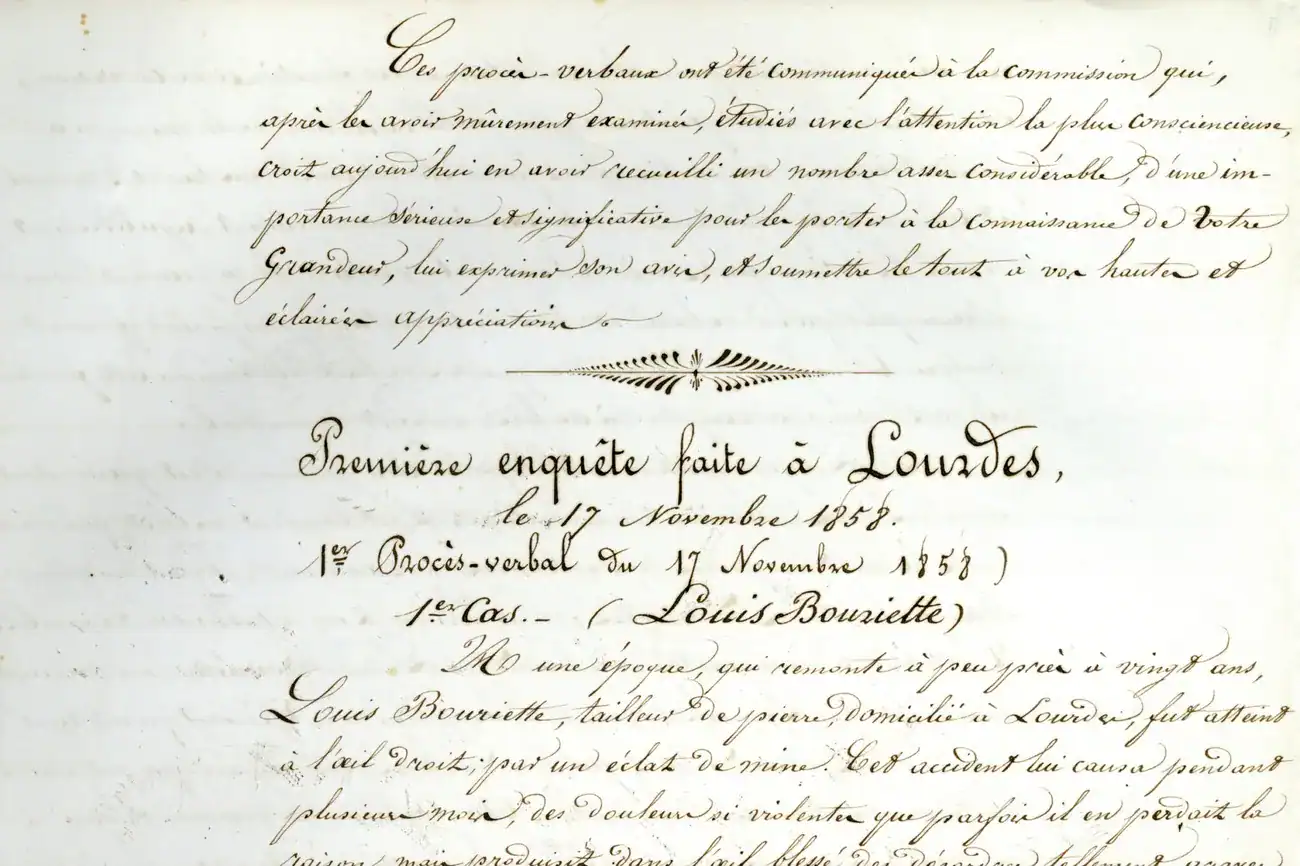 Ces procès-verbaux ont été communiqués à la commission qui,
après les avoir mûrement examinés, étudiés avec l'attention la plus consciencieuse,
croit aujourd'hui en avoir recueilli un nombre assez considérable, d'une im-
portance sérieuse et significative pour les porter à la connaissance de Votre
Grandeur, lui exprimer son avis, et soumettre le tout à vos hautes et
éclairées appréciations
Première enquête faite à Lourdes,
le 17 Novembre 1858.
1er Procès-verbal du 17 Novembre 1858)
1er Cas. - (Louis Bouriette)
A une époque, qui remonte à peu près à vingt ans,
Louis Bouriette, tailleur de pierre, domicilié à Lourdes, fut atteint
à l'œil droit, par un éclat de mine. Cet accident lui causa pendant
plusieurs mois, des douleurs si violentes que parfois il en perdait la
raison, mais produisit dans l'œil blessé des désordres tellement graves